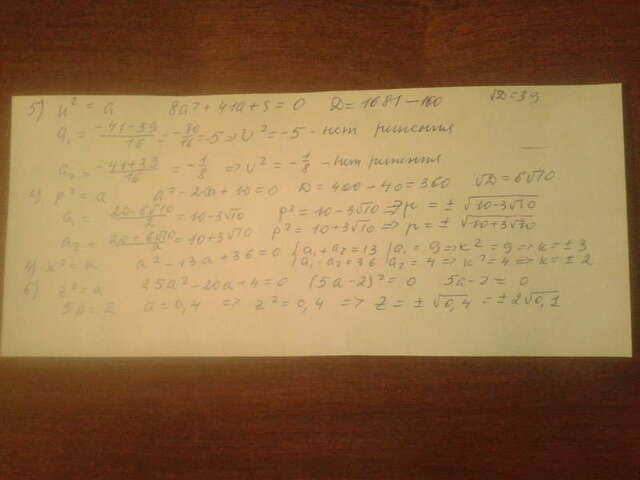 5) u² = a 8a²+41a+5=0 D=1681-160 √D=39
a₁ = (-41-39)/16 = -80/16 = -5 ⇒ U² = -5 - нет решения
a₂ = (-41+39)/16 = -1/8 ⇒ U² = -1/8 - нет решения
2) p² = a a²-20a+10=0 D=400-40=360 √D=6√10
a₁ = (20-6√10)/2 = 10-3√10 p²=10-3√10 ⇒ p = ±√(10-3√10)
a₂ = (20+6√10)/2 = 10+3√10 p²=10+3√10 ⇒ p = ±√(10+3√10)
4) x²=a a²-13a+36=0 {a₁+a₂=13 |a₁=9⇒x²=9⇒x=±3
a₁·a₂=36 a₂=4⇒x²=4⇒x=±2
6) z²=a 25a²-20a+4=0 (5a-2)²=0 5a-2=0
5a=2 a=0,4 ⇒ z²=0,4 ⇒ z=±√0,4=±2√0,1